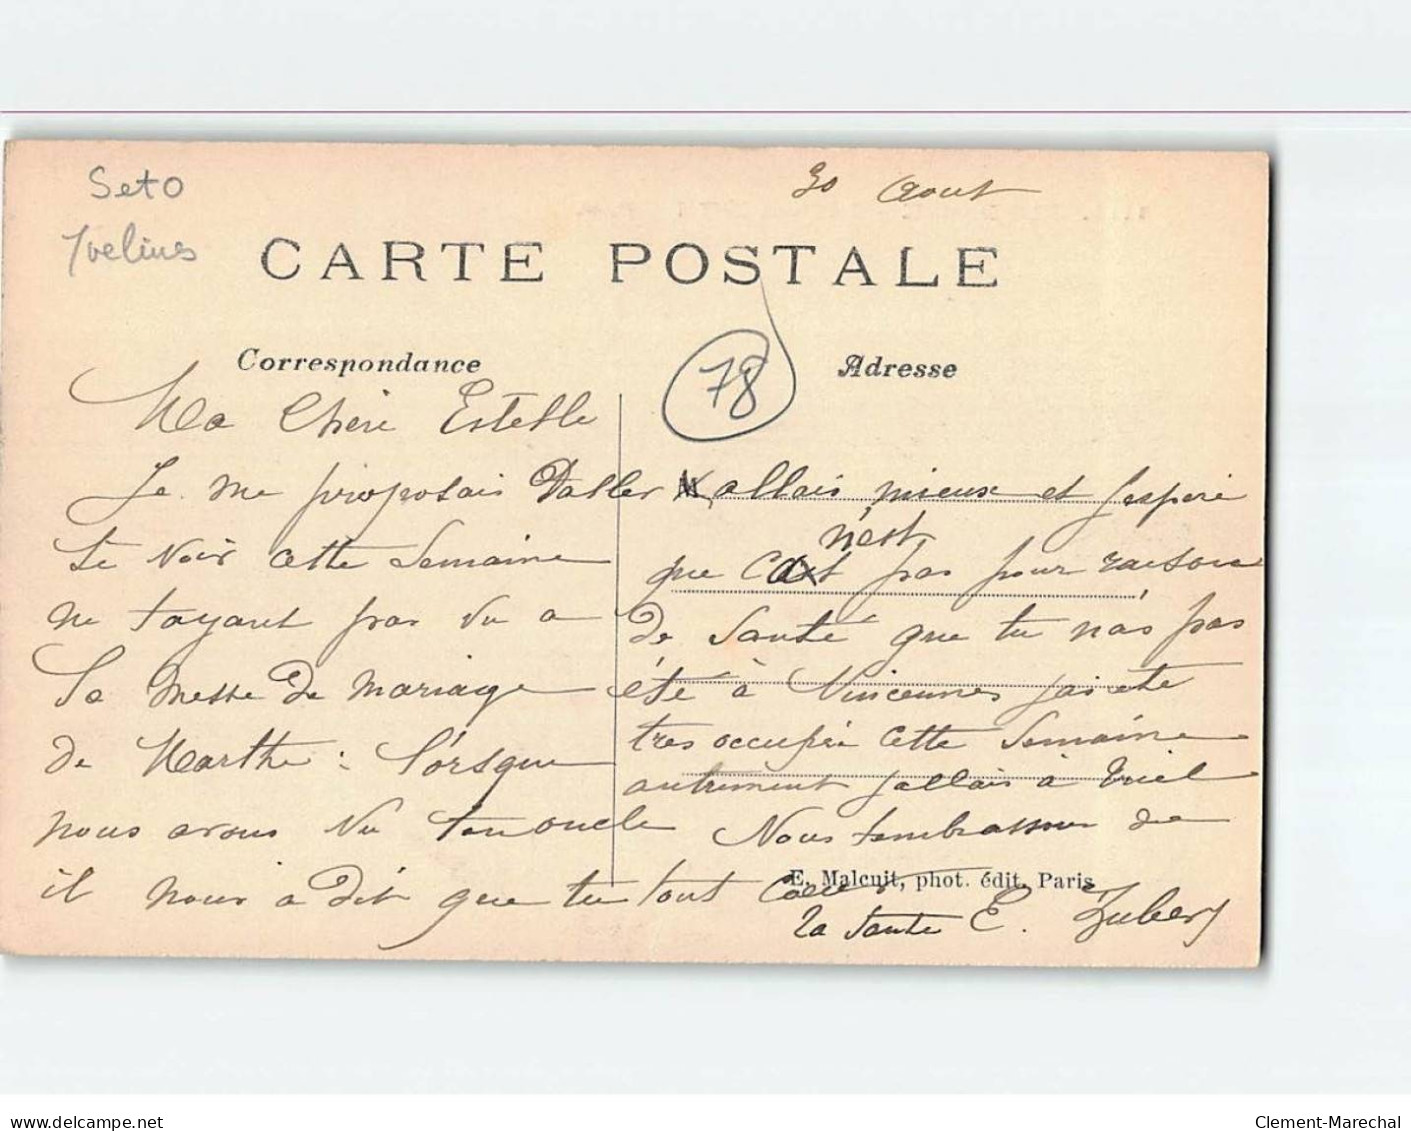 Seto
Yvelines
30 Aout
CARTE POSTALE
Correspondance
78
Adresse
Ma Chère Estelle
Je me proposais Daller
te voir cette Semaine
ne tayant pas vu a
la messe de mariage
de Marthe : lorsque
nous avons vu ton oncle
il nous a dit que tu
allais mieux et jespère
n'est
que pas pour raison
de santé que tu nas pas
été à Vincennes jai ete
tres occupée cette Semaine
autrement jallais à Triel
Nous tembrassons de
tout
E. Malcuit, phot. édit. Paris
ta tante E. Zubers
www.delcampe.net
Clement-Marechal